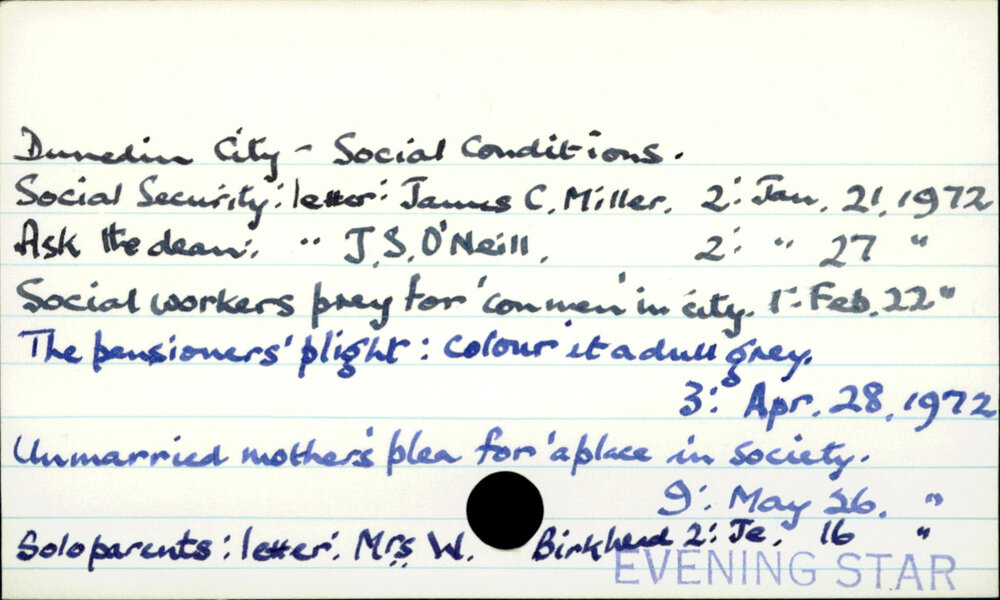 Dunedin City - Social Conditions.
Social Security: letter: James C. Miller. 2: Jan. 21, 1972
Ask the dean: " J.S. O'Neill, 2: " 27 "
Social workers prey for 'con men' in city. 1: Feb. 22 "
The pensioners' plight: Colour it a dull grey.
3: Apr. 28, 1972
Unmarried mothers' plea for 'a place in society.
9: May 26. "
Solo parents: letter: Mrs W. Birkhead 2: Je. 16 "
EVENING STAR